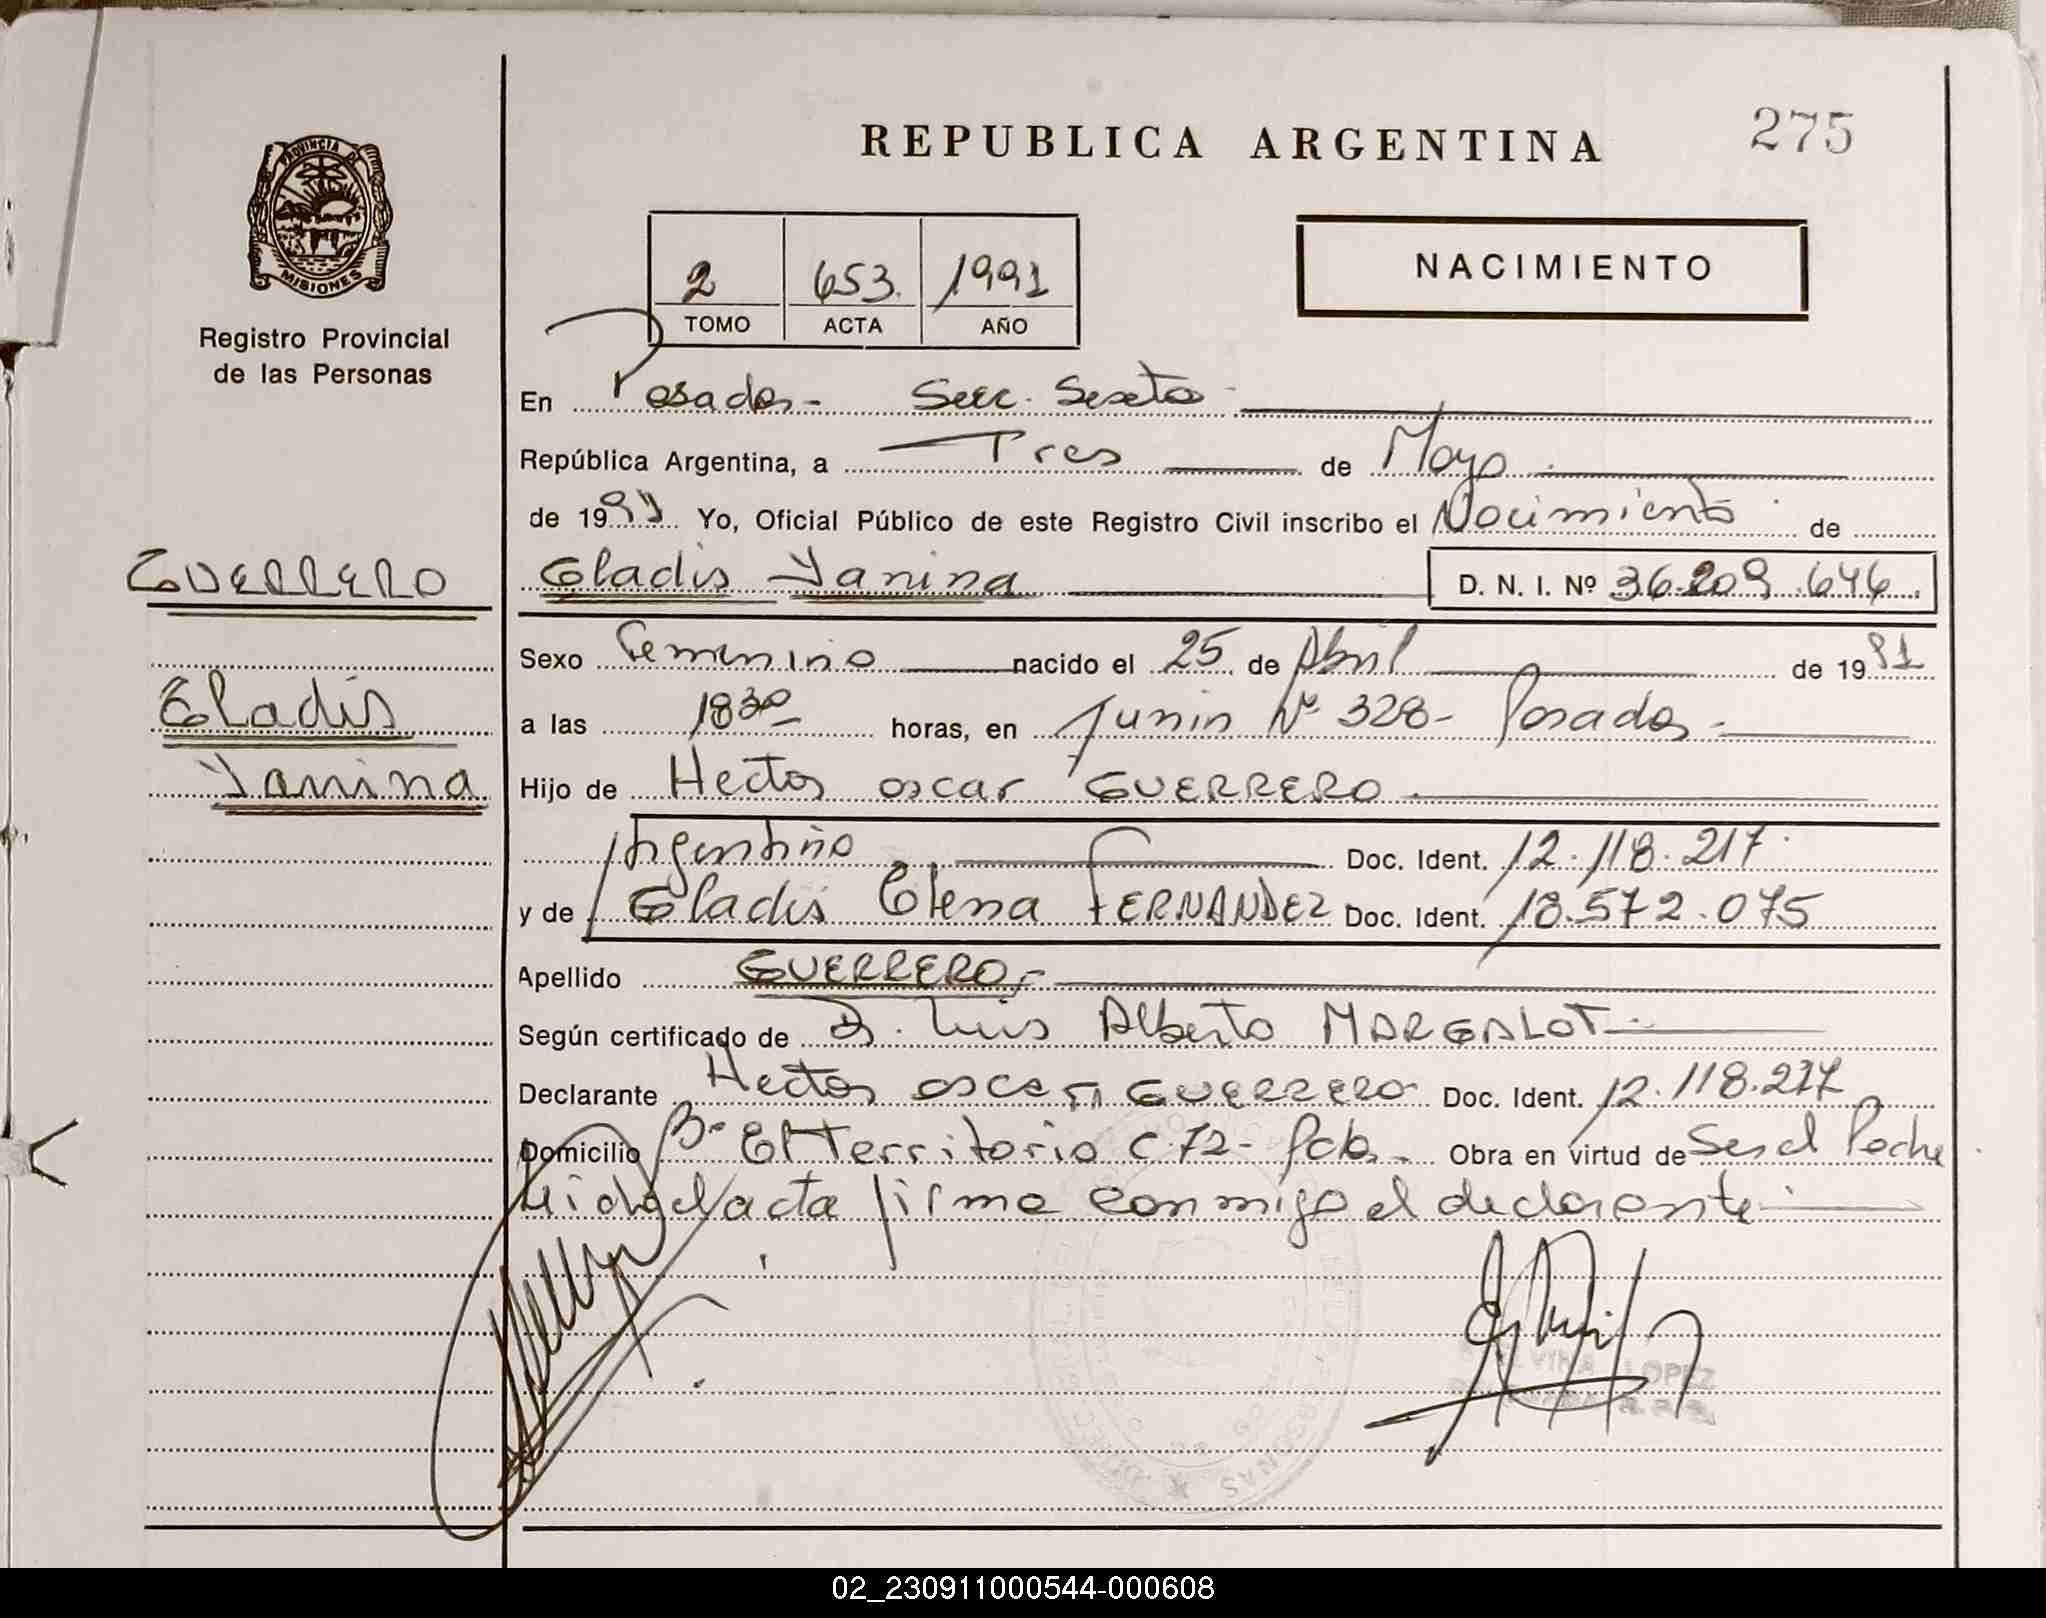 275
REPUBLICA ARGENTINA
PROVINCIA DE
MISIONES
Registro Provincial
de las Personas
NACIMIENTO
2 653. 1991
TOMO ACTA AÑO
En Posadas - Secc. Sexta -
República Argentina, a Tres de Mayo
de 1991 Yo, Oficial Público de este Registro Civil inscribo el Nacimiento de
GUERRERO
Gladis Yanina D. N. I. Nº 36.209.646.
Sexo Femenino nacido el 25 de Abril de 1991
Gladis
a las 1830 horas, en Junin Nº 328 - Posadas -
Yanina
Hijo de Hector oscar GUERRERO
Argentino Doc. Ident. 12.118.217
y de Gladis Elena FERNANDEZ Doc. Ident. 18.572.075
Apellido GUERRERO.-
Según certificado de Dr. Luis Alberto MARGALOT
Declarante Hector oscar GUERRERO Doc. Ident. 12.118.217
Domicilio Bº El Territorio C 72 - Pcia. Obra en virtud de Ser el Padre
Leida el acta firma conmigo el declarante
LOPEZ
02_230911000544-000608